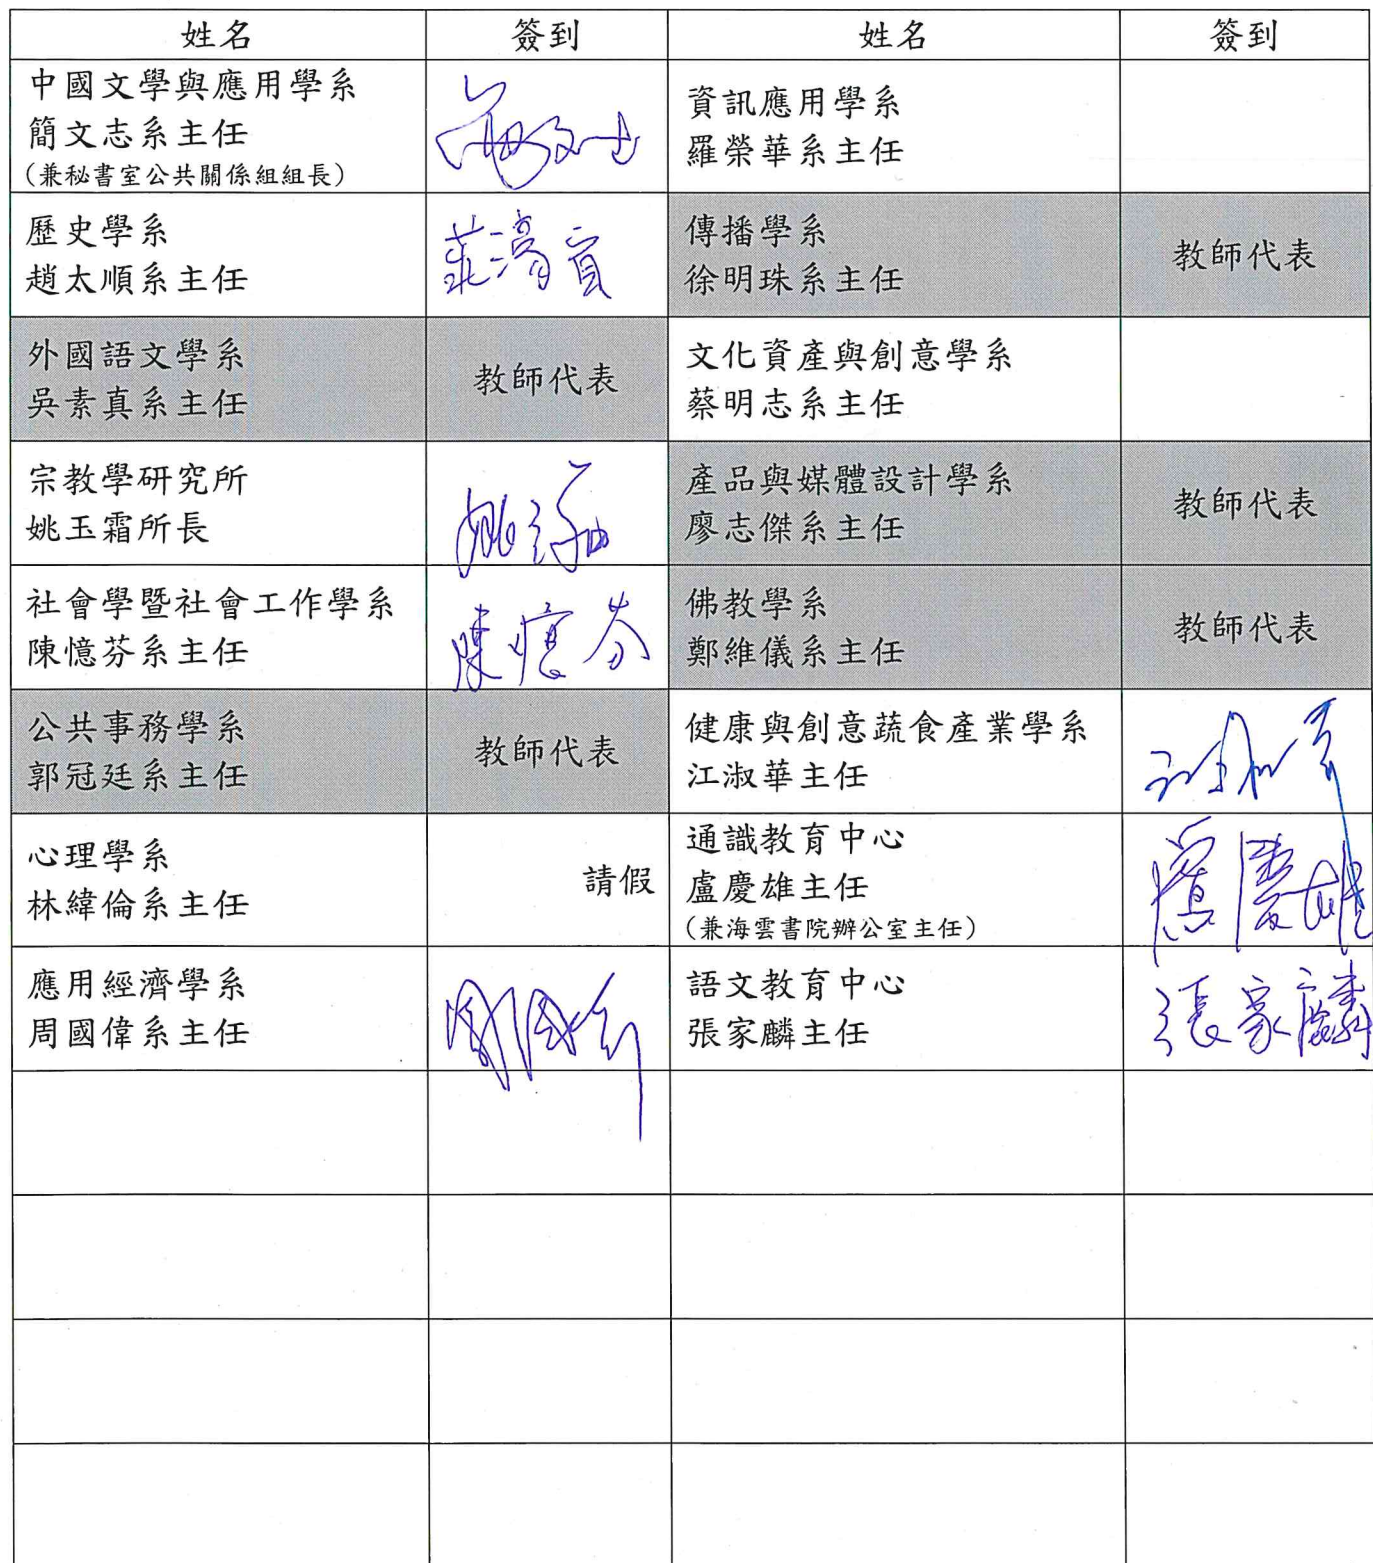 姓名 簽到 姓名 簽到
中國文學與應用學系
簡文志系主任
(兼秘書室公共關係組組長)
資訊應用學系
羅榮華系主任
歷史學系
趙太順系主任
傳播學系
徐明珠系主任
教師代表
外國語文學系
吳素真系主任
教師代表
文化資產與創意學系
蔡明志系主任
宗教學研究所
姚玉霜所長
產品與媒體設計學系
廖志傑系主任
教師代表
社會學暨社會工作學系
陳憶芬系主任
陳憶芬
佛教學系
鄭維儀系主任
教師代表
公共事務學系
郭冠廷系主任
教師代表
健康與創意蔬食產業學系
江淑華主任
心理學系
林緯倫系主任
請假
通識教育中心
盧慶雄主任
(兼海雲書院辦公室主任)
盧慶雄
應用經濟學系
周國偉系主任
周國偉
語文教育中心
張家麟主任
張家麟